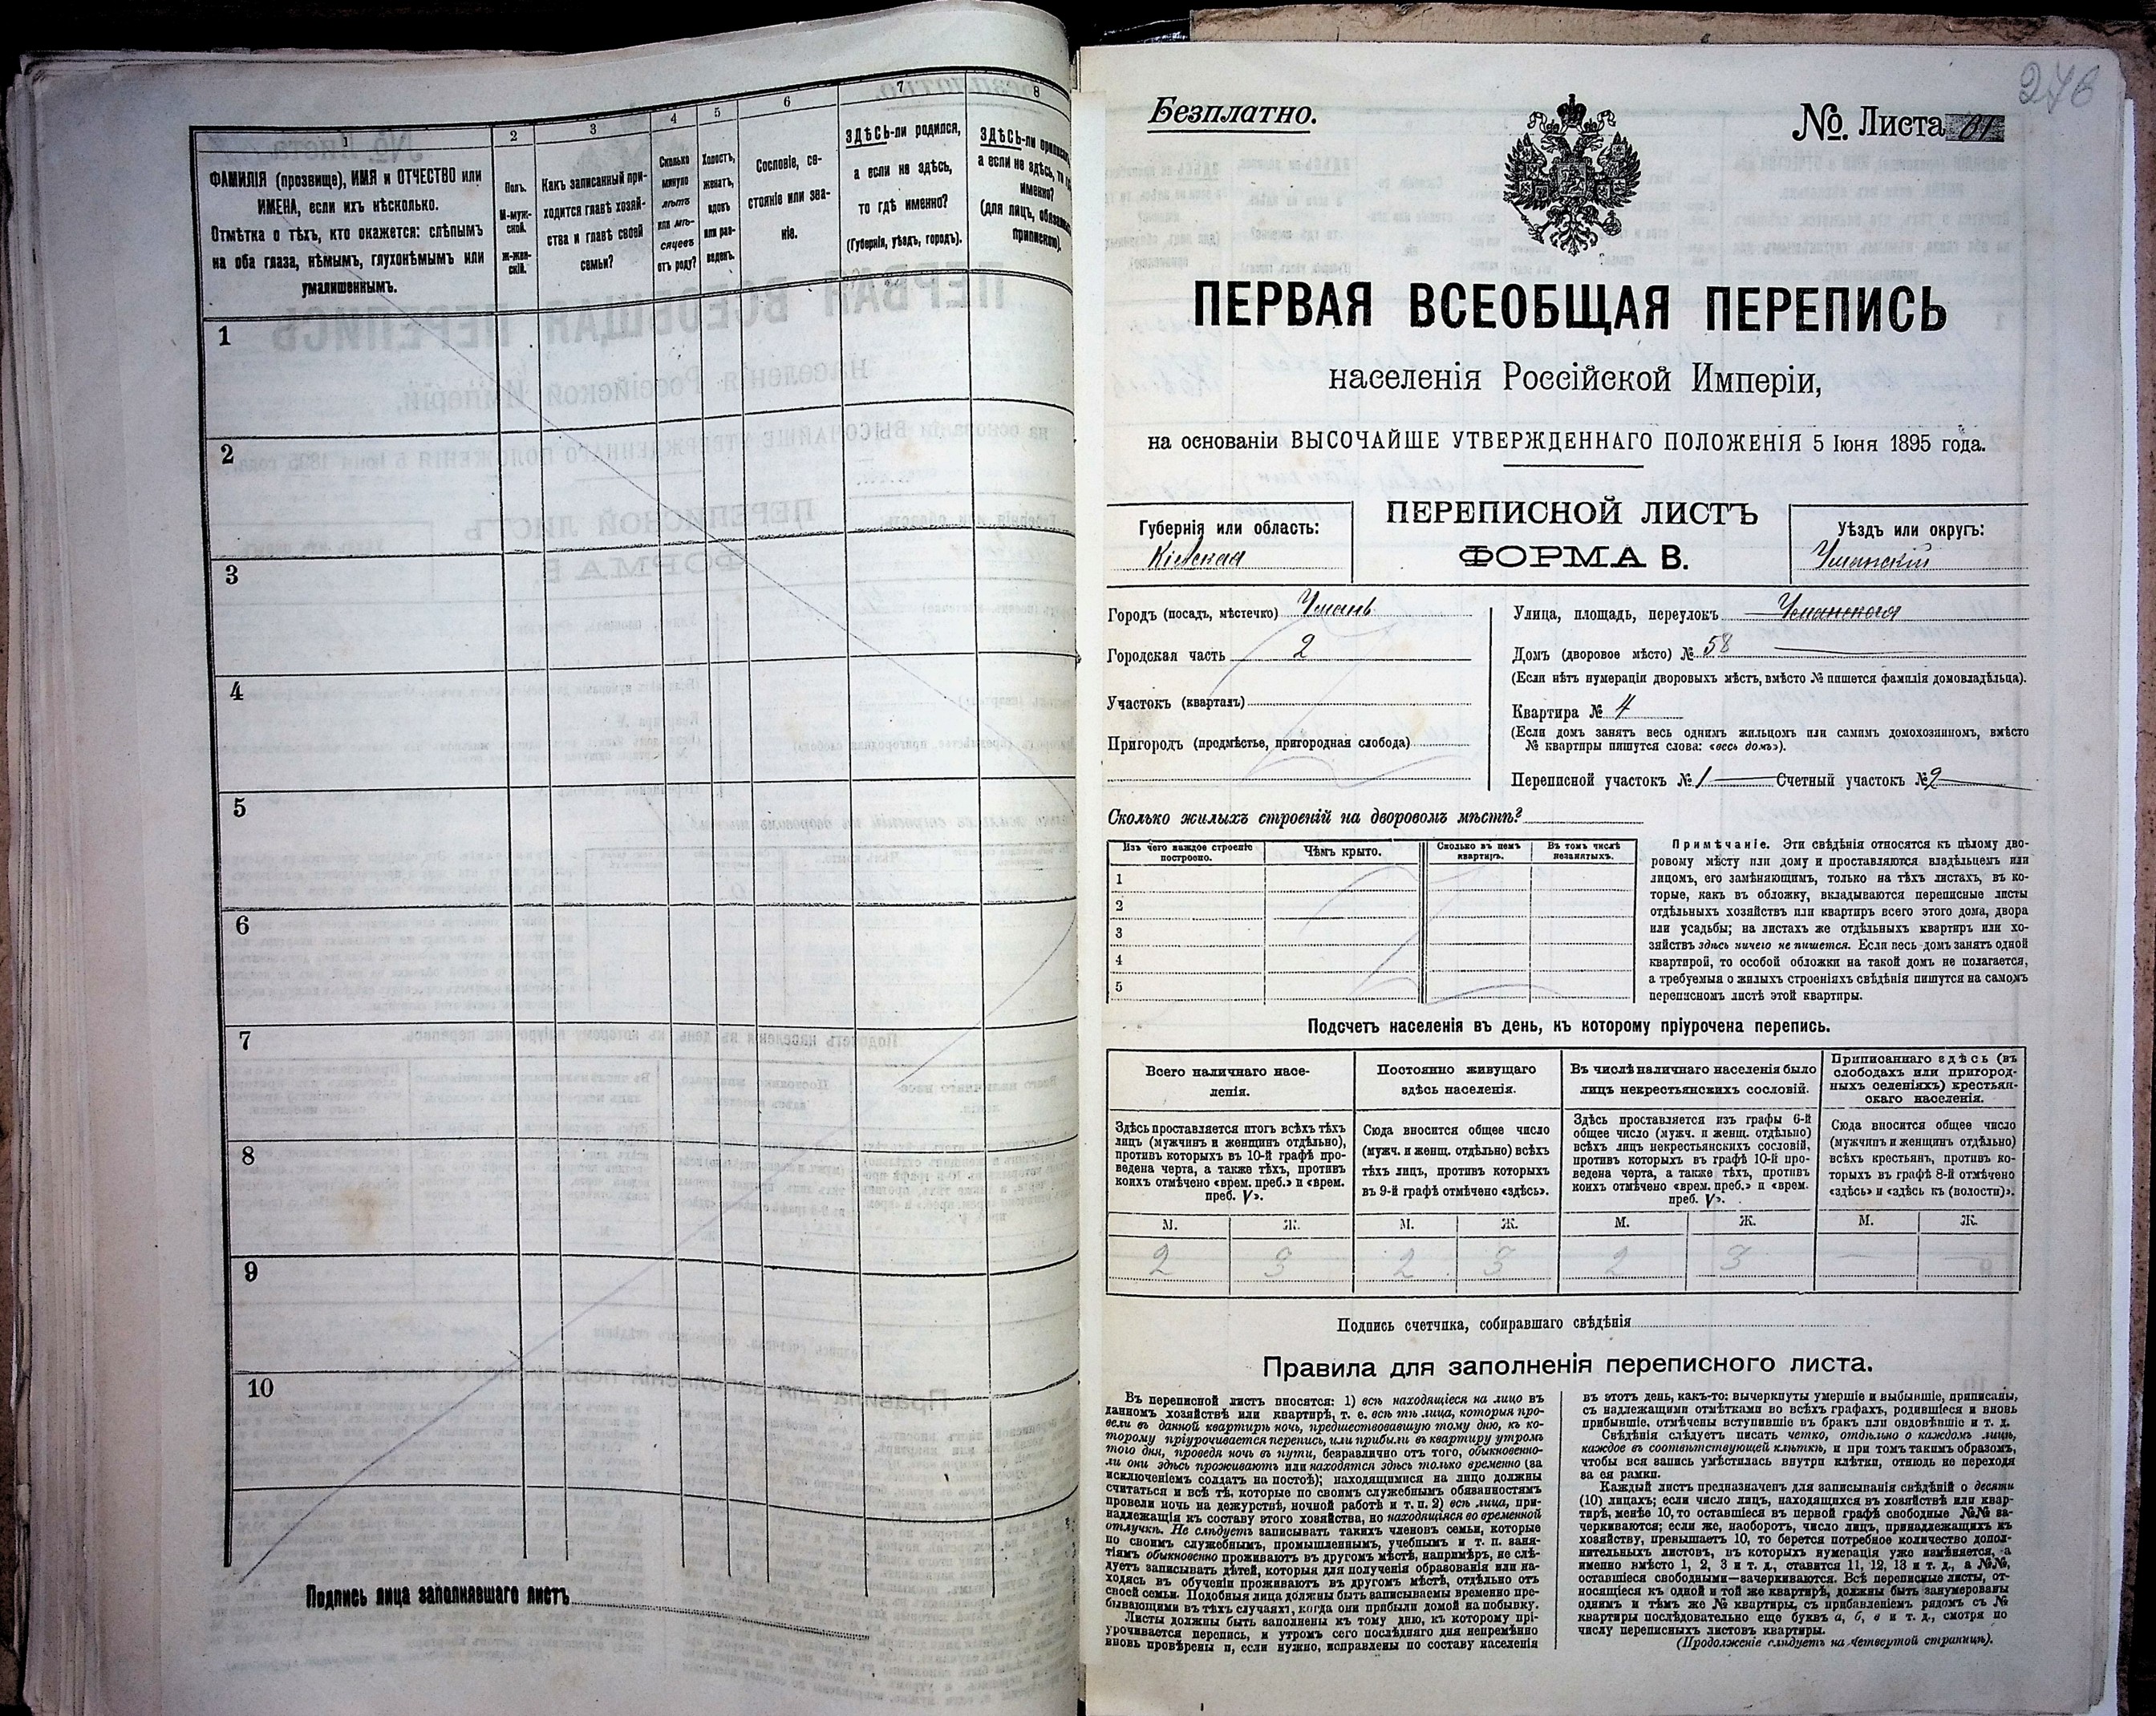 1
2
3
4
5
6
7
8
ФАМИЛІЯ (прозвище), ИМЯ и ОТЧЕСТВО или
ИМЕНА, если ихъ нѣсколько.
Отмѣтка о тѣхъ, кто окажется: слѣпымъ
на оба глаза, нѣмымъ, глухонѣмымъ или
умалишеннымъ.
Полъ.
М-муж-
ской.
Ж-жен-
скій.
Какъ записанный при-
ходится главѣ хозяй-
ства и главѣ своей
семьи?
Сколько
минуло
лѣтъ
или мѣ-
сяцевъ
отъ роду?
Холостъ,
женатъ,
вдовъ
или раз-
веденъ.
Сословіе, со-
стояніе или зва-
ніе.
ЗДѢСЬ-ли родился,
а если не здѣсь,
то гдѣ именно?
(Губернія, уѣздъ, городъ).
ЗДѢСЬ-ли приписанъ,
а если не здѣсь, то гдѣ
именно?
(для лицъ, обязанныхъ
припискою).
1
2
3
4
5
6
7
8
9
10
Подпись лица заполнявшаго листъ
276
Безплатно.
№. Листа 61
ПЕРВАЯ ВСЕОБЩАЯ ПЕРЕПИСЬ
населенія Россійской Имперіи,
на основаніи ВЫСОЧАЙШЕ УТВЕРЖДЕННАГО ПОЛОЖЕНІЯ 5 Іюня 1895 года.
Губернія или область:
Кіевская
ПЕРЕПИСНОЙ ЛИСТЪ
ФОРМА В.
Уѣздъ или округъ:
Уманскій
Городъ (посадъ, мѣстечко) Умань
Городская часть 2
Участокъ (кварталъ)
Пригородъ (предмѣстье, пригородная слобода)
Улица, площадь, переулокъ Уманская
Домъ (дворовое мѣсто) № 58
(Если нѣтъ нумераціи дворовыхъ мѣстъ, вмѣсто № пишется фамилія домовладѣльца).
Квартира № 4
(Если домъ занятъ весь однимъ жильцомъ или самимъ домохозяиномъ, вмѣсто
№ квартиры пишутся слова: «весь домъ»).
Переписной участокъ № 1 Счетный участокъ № 2
Сколько жилыхъ строеній на дворовомъ мѣстѣ?
Изъ чего каждое строеніе
построено.
Чѣмъ крыто.
Сколько въ немъ
квартиръ.
Въ томъ числѣ
незанятыхъ.
1
2
3
4
5
Примѣчаніе. Эти свѣдѣнія относятся къ цѣлому дво-
ровому мѣсту или дому и проставляются владѣльцемъ или
лицомъ, его замѣняющимъ, только на тѣхъ листахъ, въ ко-
торые, какъ въ обложку, вкладываются переписные листы
отдѣльныхъ хозяйствъ или квартиръ всего этого дома, двора
или усадьбы; на листахъ же отдѣльныхъ квартиръ или хо-
зяйствъ здѣсь ничего не пишется. Если весь домъ занятъ одной
квартирой, то особой обложки на такой домъ не полагается,
а требуемыя о жилыхъ строеніяхъ свѣдѣнія пишутся на самомъ
переписномъ листѣ этой квартиры.
Подсчетъ населенія въ день, къ которому пріурочена перепись.
Всего наличнаго насе-
ленія.
Постоянно живущаго
здѣсь населенія.
Въ числѣ наличнаго населенія было
лицъ некрестьянскихъ сословій.
Приписаннаго здѣсь (въ
слободахъ или пригород-
ныхъ селеніяхъ) крестьян-
скаго населенія.
Здѣсь проставляется итогъ всѣхъ тѣхъ
лицъ (мужчинъ и женщинъ отдѣльно),
противъ которыхъ въ 10-й графѣ про-
ведена черта, а также тѣхъ, противъ
коихъ отмѣчено «врем. преб.» и «врем.
преб. V».
Сюда вносится общее число
(мужч. и женщ. отдѣльно) всѣхъ
тѣхъ лицъ, противъ которыхъ
въ 9-й графѣ отмѣчено «здѣсь».
Здѣсь проставляется изъ графы 6-й
общее число (мужч. и женщ. отдѣльно)
всѣхъ лицъ некрестьянскихъ сословій,
противъ которыхъ въ графѣ 10-й про-
ведена черта, а также тѣхъ, противъ
коихъ отмѣчено «врем. преб.» и «врем.
преб. V».
Сюда вносится общее число
(мужчинъ и женщинъ отдѣльно)
всѣхъ крестьянъ, противъ ко-
торыхъ въ графѣ 8-й отмѣчено
«здѣсь» и «здѣсь къ (волости)».
М. Ж. М. Ж. М. Ж. М. Ж.
2 3 2 3 2 3
Подпись счетчика, собиравшаго свѣдѣнія
Правила для заполненія переписного листа.
Въ переписной листъ вносятся: 1) всѣ находящіеся на лицо въ
данномъ хозяйствѣ или квартирѣ, т. е. всѣ тѣ лица, которыя про-
вели въ данной квартирѣ ночь, предшествовавшую тому дню, къ ко-
торому пріурочивается перепись, или прибыли въ квартиру утромъ
того дня, проведя ночь въ пути, безразлично отъ того, обыкновенно-
ли они здѣсь проживаютъ или находятся здѣсь только временно (за
исключеніемъ солдатъ на постоѣ); находящимися на лицо должны
считаться и всѣ тѣ, которые по своимъ служебнымъ обязанностямъ
провели ночь на дежурствѣ, ночной работѣ и т. п. 2) всѣ лица, при-
надлежащія къ составу этого хозяйства, но находящіяся во временной
отлучкѣ. Не слѣдуетъ записывать такихъ членовъ семьи, которые
по своимъ служебнымъ, промышленнымъ, учебнымъ и т. п. заня-
тіямъ обыкновенно проживаютъ въ другомъ мѣстѣ, напримѣръ, не слѣ-
дуетъ записывать дѣтей, которыя для полученія образованія или на-
ходясь въ обученіи проживаютъ въ другомъ мѣстѣ, отдѣльно отъ
своей семьи. Подобныя лица должны быть записываемы временно пре-
бывающими въ тѣхъ случаяхъ, когда они прибыли домой на побывку.
Листы должны быть заполнены къ тому дню, къ которому прі-
урочивается перепись, и утромъ сего послѣдняго дня непремѣнно
вновь провѣрены и, если нужно, исправлены по составу населенія
въ этотъ день, какъ-то: вычеркнуты умершіе и выбывшіе, приписаны,
съ надлежащими отмѣтками во всѣхъ графахъ, родившіеся и вновь
прибывшіе, отмѣчены вступившіе въ бракъ или овдовѣвшіе и т. д.
Свѣдѣнія слѣдуетъ писать четко, отдѣльно о каждомъ лицѣ,
каждое въ соотвѣтствующей клѣткѣ, и при томъ такимъ образомъ,
чтобы вся запись умѣстилась внутри клѣтки, отнюдь не переходя
за ея рамки.
Каждый листъ предназначенъ для записыванія свѣдѣній о десяти
(10) лицахъ; если число лицъ, находящихся въ хозяйствѣ или квар-
тирѣ, менѣе 10, то оставшіеся въ первой графѣ свободные №№ за-
черкиваются; если же, наоборотъ, число лицъ, принадлежащихъ къ
хозяйству, превышаетъ 10, то берется потребное количество допол-
нительныхъ листовъ, въ которыхъ нумерація уже измѣняется, а
именно вмѣсто 1, 2, 3 и т. д., ставится 11, 12, 13 и т. д., а №№,
оставшіеся свободными—зачеркиваются. Всѣ переписные листы, от-
носящіеся къ одной и той же квартирѣ, должны быть занумерованы
однимъ и тѣмъ же № квартиры, съ прибавленіемъ рядомъ съ №
квартиры послѣдовательно еще буквъ а, б, в и т. д., смотря по
числу переписныхъ листовъ квартиры.
(Продолженіе слѣдуетъ на четвертой страницѣ).